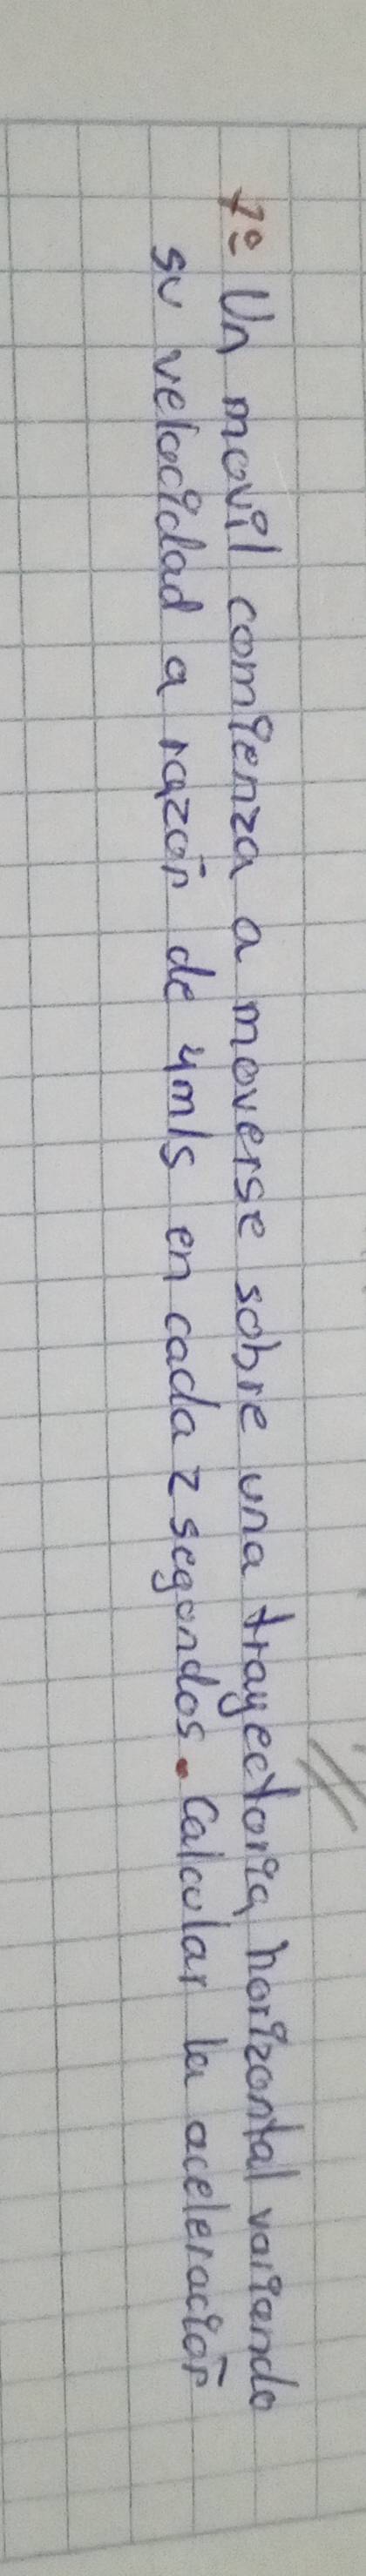 1º Un movil comienza a moverse sobre una trayectoria horizontal variando
su velocidad a razón de 4m/s en cada 2 segondos. Calcular la aceleración